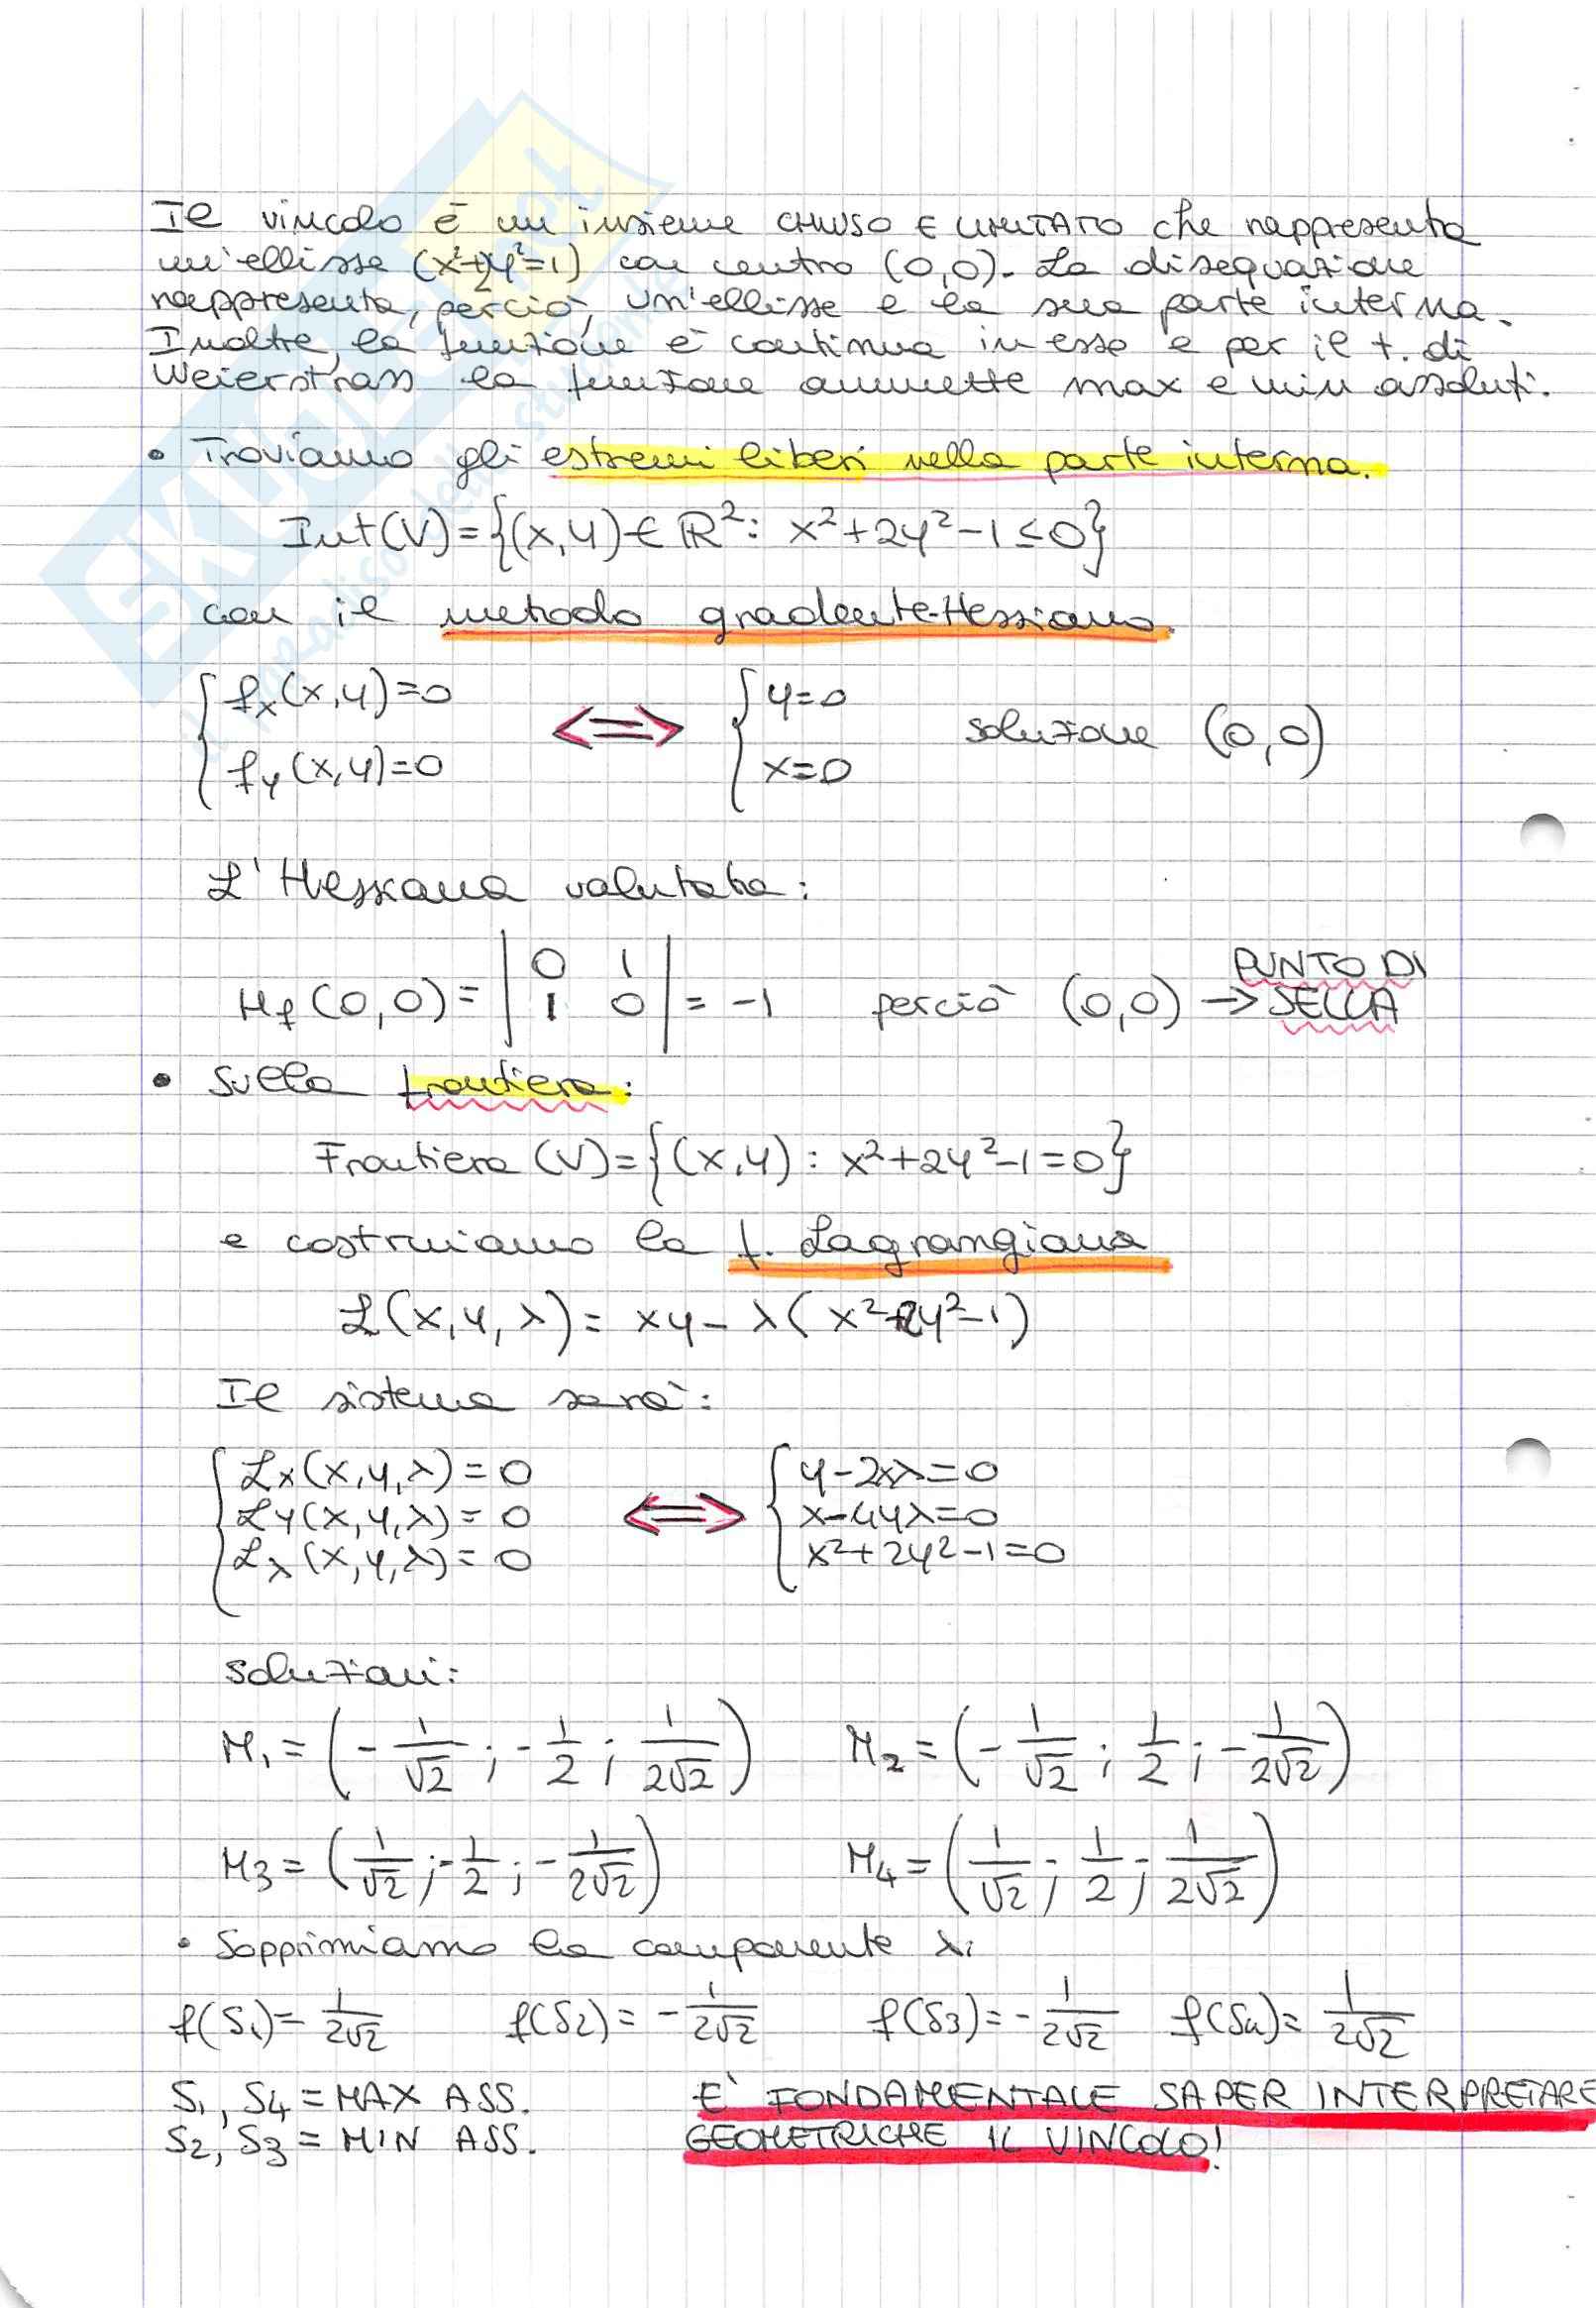 Il vincolo è un insieme CHIUSO E LIMITATO che rappresenta
un'ellisse (x²+2y²=1) con centro (0,0). La disequazione
rappresenta, perciò, un'ellisse e la sua parte interna.
Inoltre, la funzione è continua in esso e per il t. di
Weierstrass la funzione ammette max e min assoluti.
• Troviamo gli estremi liberi nella parte interna.
Int(V)={(x,y)∈ℝ²: x²+2y²-1≤0}
con il metodo gradiente-Hessiano.
{fx(x,y)=0 <=> {y=0 soluzione (0,0)
{fy(x,y)=0 {x=0
L'Hessiana valutata:
Hf(0,0)=|0 1| PUNTO DI
|1 0|=-1 perciò (0,0) → SELLA
• Sulla frontiera:
Frontiera (V)={(x,y): x²+2y²-1=0}
e costruiamo la f. Lagrangiana
ℒ(x,y,λ)= xy-λ(x²+2y²-1)
Il sistema sarà:
{ℒx(x,y,λ)=0 {y-2xλ=0
{ℒy(x,y,λ)=0 <=> {x-4yλ=0
{ℒλ(x,y,λ)=0 {x²+2y²-1=0
soluzioni:
M₁=(-1/√2; -1/2; 1/2√2) M₂=(-1/√2; 1/2; -1/2√2)
M₃=(1/√2; -1/2; -1/2√2) M₄=(1/√2; 1/2; 1/2√2)
• Sopprimiamo la componente λ:
f(S₁)=1/2√2 f(S₂)=-1/2√2 f(S₃)=-1/2√2 f(S₄)=1/2√2
S₁, S₄ = MAX ASS. E' FONDAMENTALE SAPER INTERPRETARE
S₂, S₃ = MIN ASS. GEOMETRICHE IL VINCOLO!